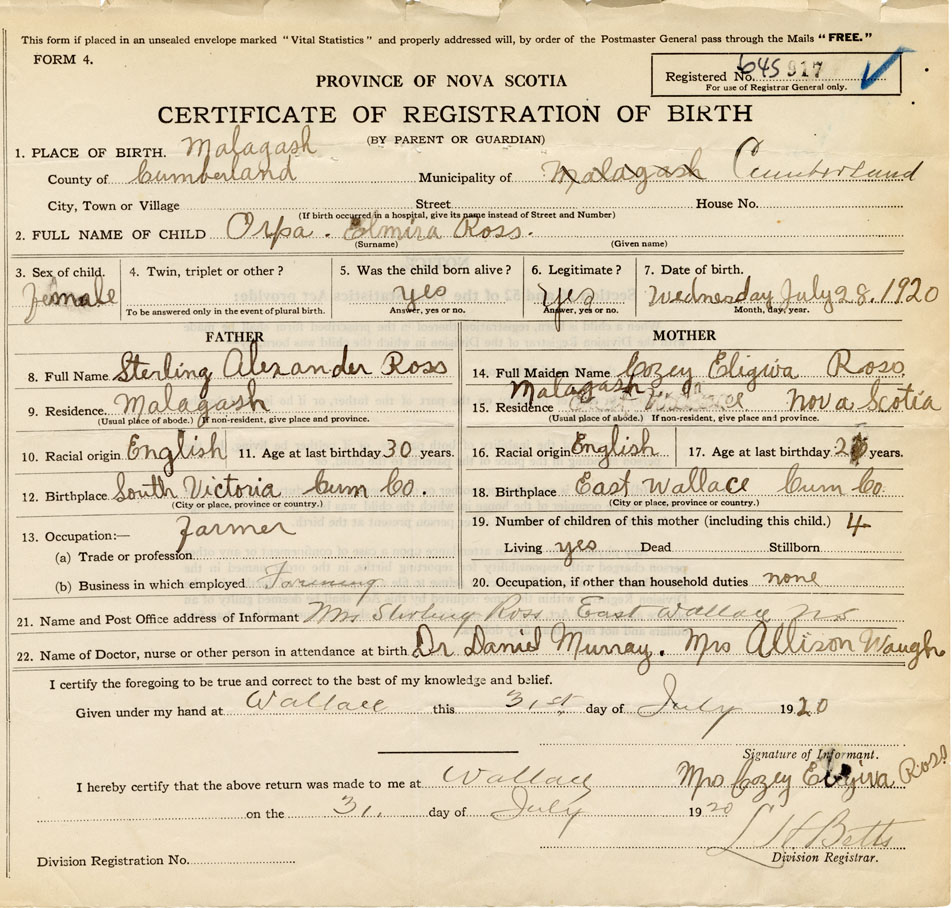 This form if placed in an unsealed envelope marked "Vital Statistics" and properly addressed will, by order of the Postmaster General pass through the Mails "FREE."
FORM 4.
Registered No. 645 917
For use of Registrar General only.
PROVINCE OF NOVA SCOTIA
CERTIFICATE OF REGISTRATION OF BIRTH
(BY PARENT OR GUARDIAN)
1. PLACE OF BIRTH. Malagash
County of Cumberland Municipality of Malagash Cumberland
City, Town or Village Street House No.
(If birth occurred in a hospital, give its name instead of Street and Number)
2. FULL NAME OF CHILD Orpa. Elmira Ross.
(Surname) (Given name)
3. Sex of child. 4. Twin, triplet or other? 5. Was the child born alive? 6. Legitimate? 7. Date of birth.
female yes yes Wednesday July 28. 1920
To be answered only in the event of plural birth. Answer, yes or no. Answer, yes or no. Month, day, year.
FATHER MOTHER
8. Full Name Sterling Alexander Ross
14. Full Maiden Name Cozey Eligiva Ross
9. Residence Malagash
(Usual place of abode.) (If non-resident, give place and province.
Malagash
15. Residence Nova Scotia
(Usual place of abode.) If non-resident, give place and province.
10. Racial origin English 11. Age at last birthday 30 years.
16. Racial origin English 17. Age at last birthday years.
12. Birthplace South Victoria Cum Co.
(City or place, province or country.)
18. Birthplace East Wallace Cum Co.
(City or place, province or country.)
13. Occupation:— Farmer
(a) Trade or profession
(b) Business in which employed Farming
19. Number of children of this mother (including this child.) 4
Living yes Dead Stillborn
20. Occupation, if other than household duties none
21. Name and Post Office address of Informant Mrs Sterling Ross East Wallace NS
22. Name of Doctor, nurse or other person in attendance at birth Dr Daniel Murray. Mrs Allison Waugh
I certify the foregoing to be true and correct to the best of my knowledge and belief.
Given under my hand at Wallace this 31st day of July 1920
Signature of Informant.
Mrs Cozey Eligiva Ross
I hereby certify that the above return was made to me at Wallace
on the 31. day of July 1920
L H Betts
Division Registrar.
Division Registration No.